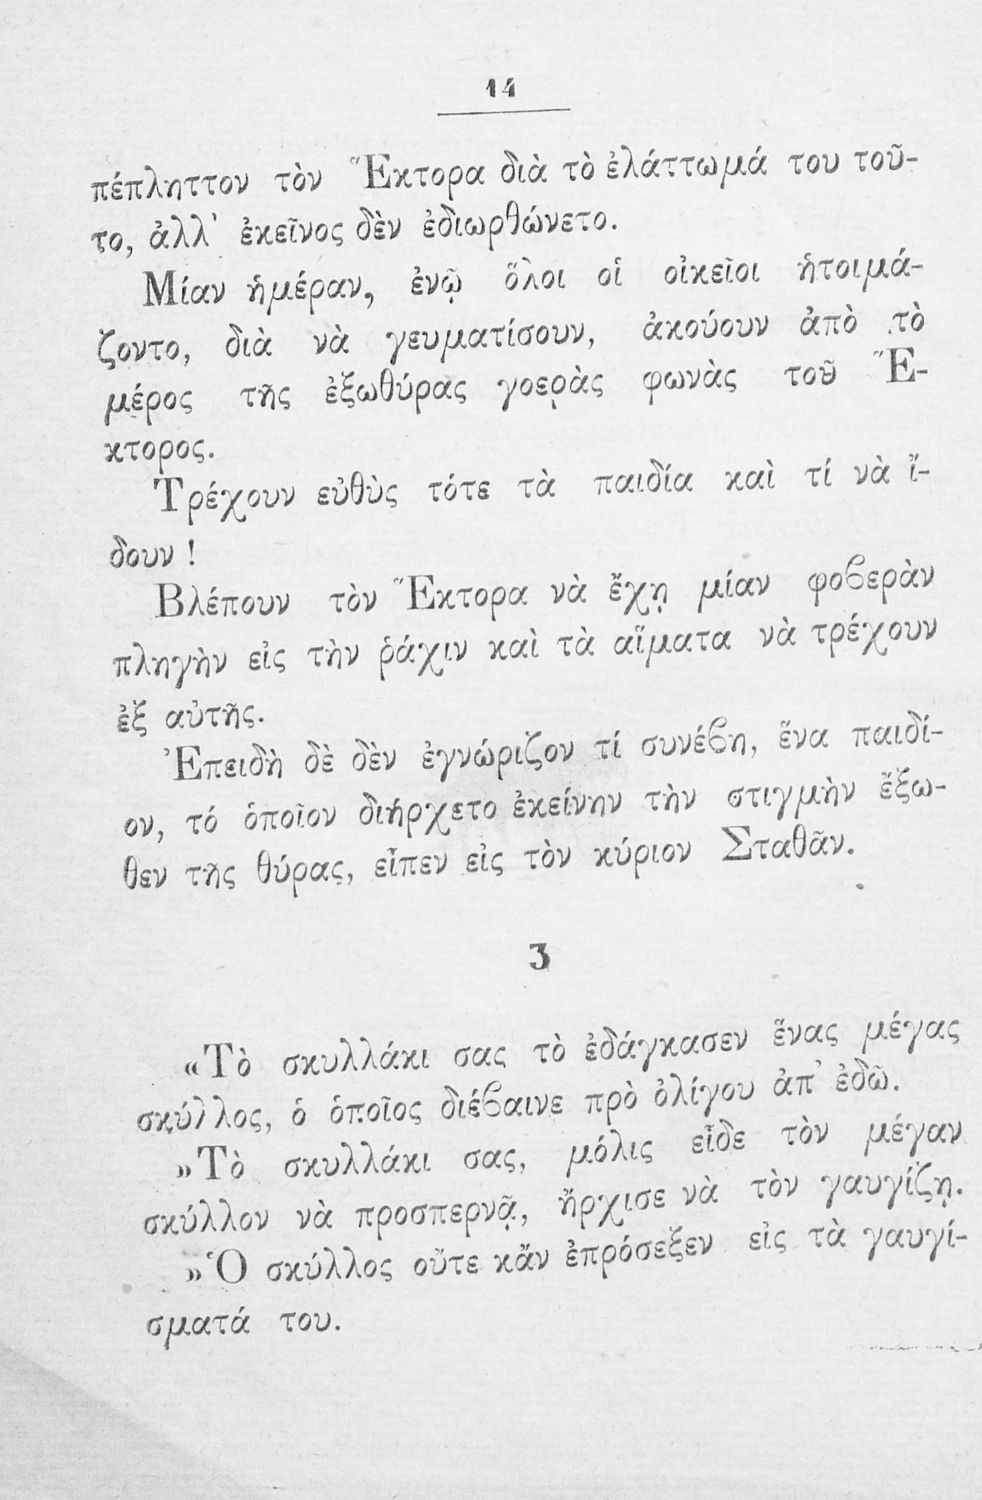 14
πέπληττον τὸν Ἕκτορα διὰ τὸ ἐλάττωμά του τοῦ-
το, ἀλλ' ἐκεῖνος δὲν ἐδιωρθώνετο.
Μίαν ἡμέραν, ἐνῷ ὅλοι οἱ οἰκεῖοι ἡτοιμά-
ζοντο, διὰ νὰ γευματίσουν, ἀκούουν ἀπὸ τὸ
μέρος τῆς ἐξωθύρας γοερὰς φωνὰς τοῦ Ἕ-
κτορος.
Τρέχουν εὐθὺς τότε τὰ παιδία καὶ τί νὰ ἴ-
δουν !
Βλέπουν τὸν Ἕκτορα νὰ ἔχῃ μίαν φοϐερὰν
πληγὴν εἰς τὴν ῥάχιν καὶ τὰ αἵματα νὰ τρέχουν
ἐξ αὐτῆς.
Ἐπειδὴ δὲ δὲν ἐγνώριζον τί συνέϐη, ἕνα παιδί-
ον, τό ὁποῖον διήρχετο ἐκείνην τὴν στιγμὴν ἔξω-
θεν τῆς θύρας, εἶπεν εἰς τὸν κύριον Σταθᾶν.
3
«Τὸ σκυλλάκι σας τὸ ἐδάγκασεν ἕνας μέγας
σκύλλος, ὁ ὁποῖος διέϐαινε πρὸ ὀλίγου ἀπ' ἐδῶ.
»Τὸ σκυλλάκι σας, μόλις εἶδε τὸν μέγαν
σκύλλον νὰ προσπερνᾷ, ἤρχισε νὰ τὸν γαυγίζῃ.
»Ὁ σκύλλος οὔτε κἄν ἐπρόσεξεν εἰς τὰ γαυγί-
σματά του.